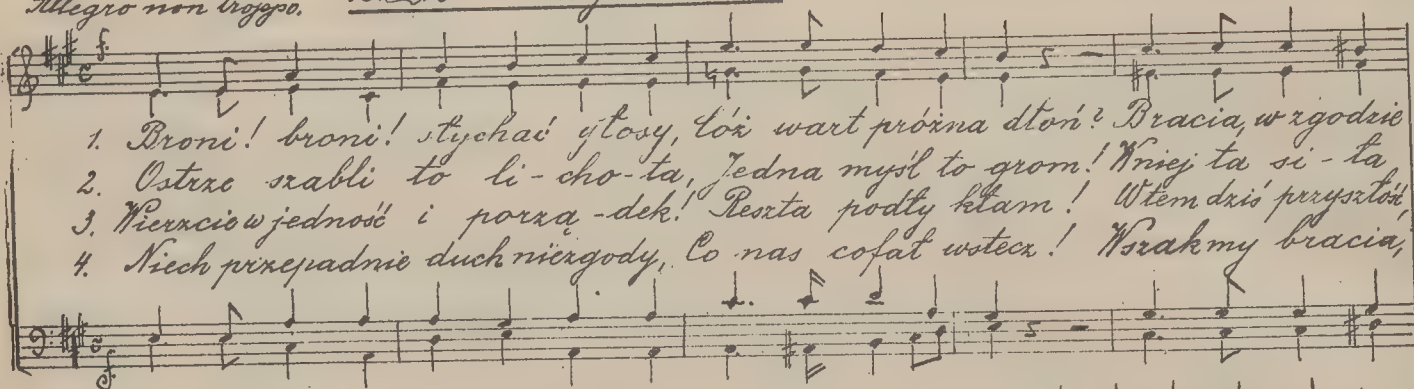 Allegro non troppo.
1. Broni! broni! słychać głosy, Cóż wart próżna dłoń? Bracia, w zgodzie
2. Ostrze szabli to li-cho-ta, Jedna myśl to grom! W niej ta si-ła
3. Wierzcie w jedność i porzą-dek! Reszta podły kłam! W tem dziś przyszłość,
4. Niech przepadnie duch niezgody, Co nas cofał wstecz! Wszak my bracia,